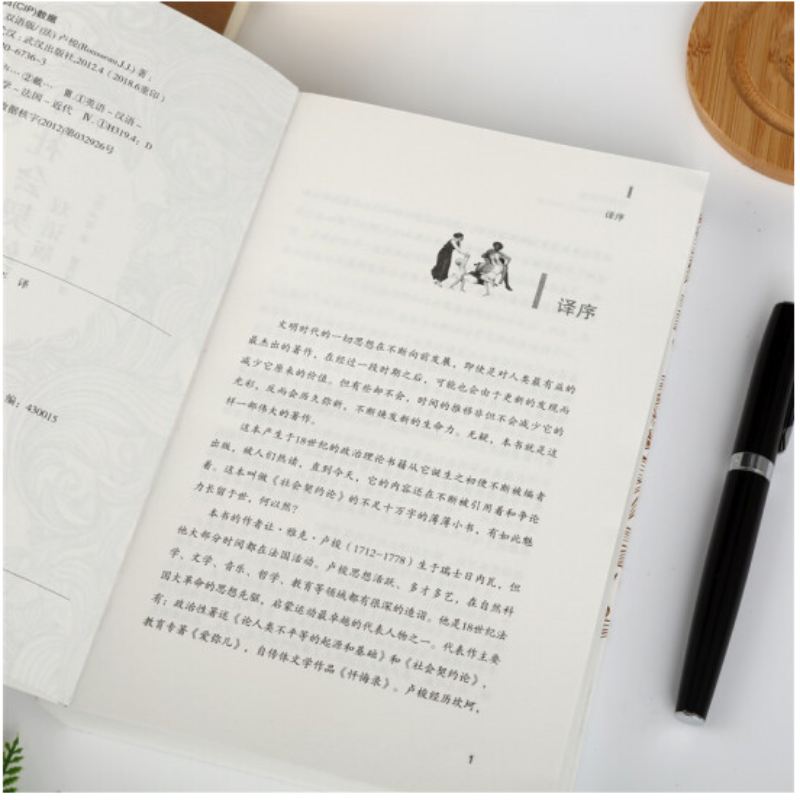 (CIP)数据
双语版/(法)卢梭(Rousseau,J.J.)著;
武汉出版社,2012.4(2018.6重印)
6736-3
②戴… Ⅲ.①英语-汉语-
学-法国-近代 Ⅳ.①H319.4:D
数据核字(2012)第032926号
译
编:430015
译序
译序
文明时代的一切思想在不断向前发展,即使是对人类最有益的
最杰出的著作,在经过一段时期之后,可能也会由于更新的发现而
减少它原来的价值。但有些却不会,时间的推移非但不会减少它的
光彩,反而会历久弥新,不断焕发新的生命力。无疑,本书就是这
样一部伟大的著作。
这本产生于18世纪的政治理论书籍从它诞生之初便不断被编者
出版,被人们热读,直到今天,它的内容还在不断被引用着和争论
着。这本叫做《社会契约论》的不足十万字的薄薄小书,有如此魅
力长留于世,何以然?
本书的作者让·雅克·卢梭(1712-1778)生于瑞士日内瓦,但
他大部分时间都在法国活动。卢梭思想活跃、多才多艺,在自然科
学、文学、音乐、哲学、教育等领域都有很深的造诣。他是18世纪法
国大革命的思想先驱,启蒙运动最卓越的代表人物之一。代表作主要
有:政治性著述《论人类不平等的起源和基础》和《社会契约论》,
教育专著《爱弥儿》,自传体文学作品《忏悔录》。卢梭经历坎坷,
1